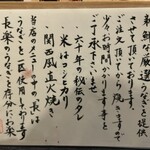 新鮮な厳選うなぎを提供
させて頂いております。
ご注文頂いてから焼きますので
少々お時間かかります事を
ご了承下さいませ
六十年の秘伝のタレ
米はコシヒカリ
関西風直火焼き
当店のメニュー「中の長」は
うなぎを一匹使用しております
長楽のうなぎを存分にお楽